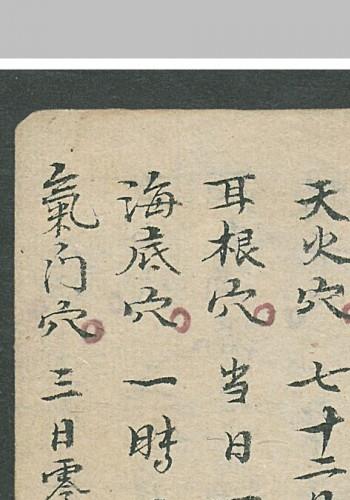 天火穴 七十二
耳根穴 当日
海底穴 一時
氣门穴 三日零